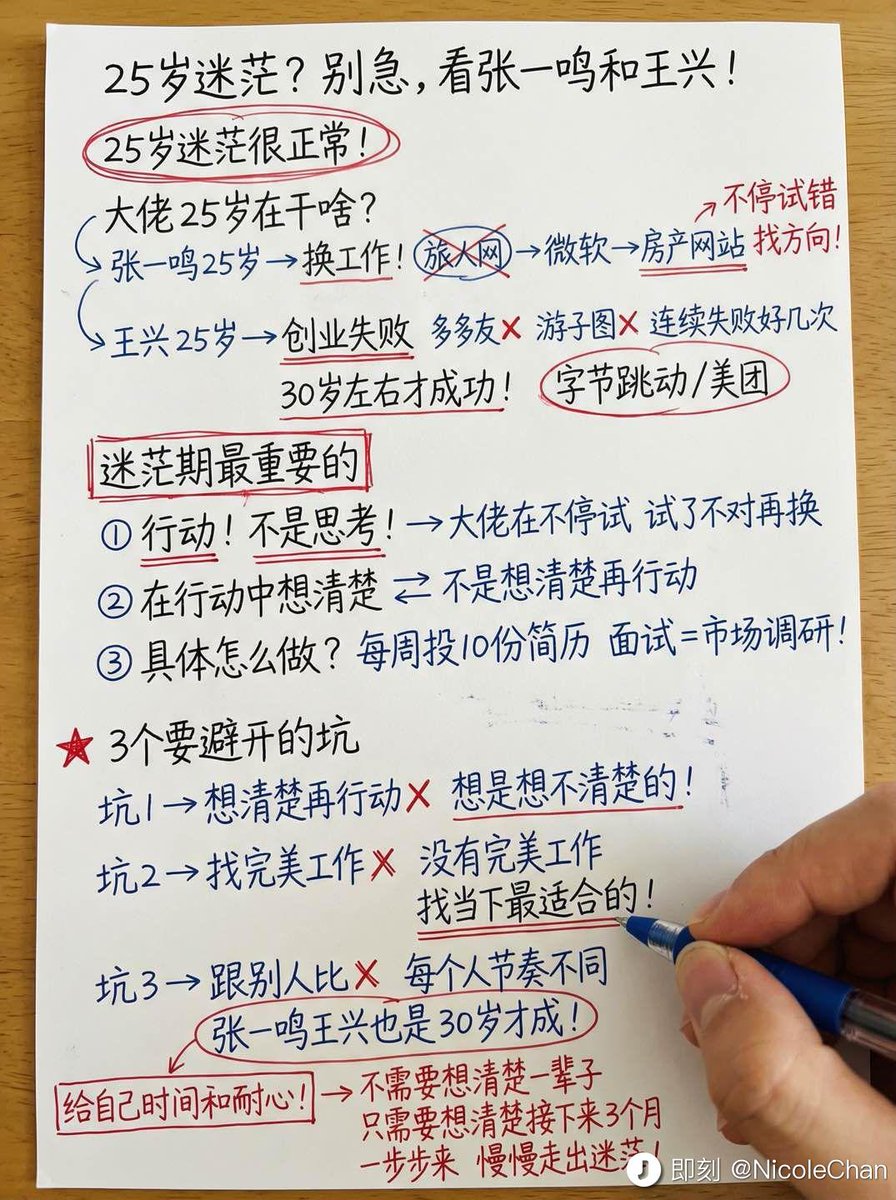 25岁迷茫?别急,看张一鸣和王兴!
25岁迷茫很正常!
大佬25岁在干啥?
张一鸣25岁→换工作! 旅人网→微软→房产网站
不停试错
找方向!
王兴25岁→创业失败 多多友× 游子图× 连续失败好几次
30岁左右才成功! 字节跳动/美团
迷茫期最重要的
① 行动!不是思考!→大佬在不停试 试了不对再换
② 在行动中想清楚⇄不是想清楚再行动
③ 具体怎么做?每周投10份简历 面试=市场调研!
★ 3个要避开的坑
坑1→想清楚再行动× 想是想不清楚的!
坑2→找完美工作× 没有完美工作
找当下最适合的!
坑3→跟别人比× 每个人节奏不同
张一鸣王兴也是30岁才成!
给自己时间和耐心!→不需要想清楚一辈子
只需要想清楚接下来3个月
一步步来 慢慢走出迷茫!
即刻 @NicoleChan